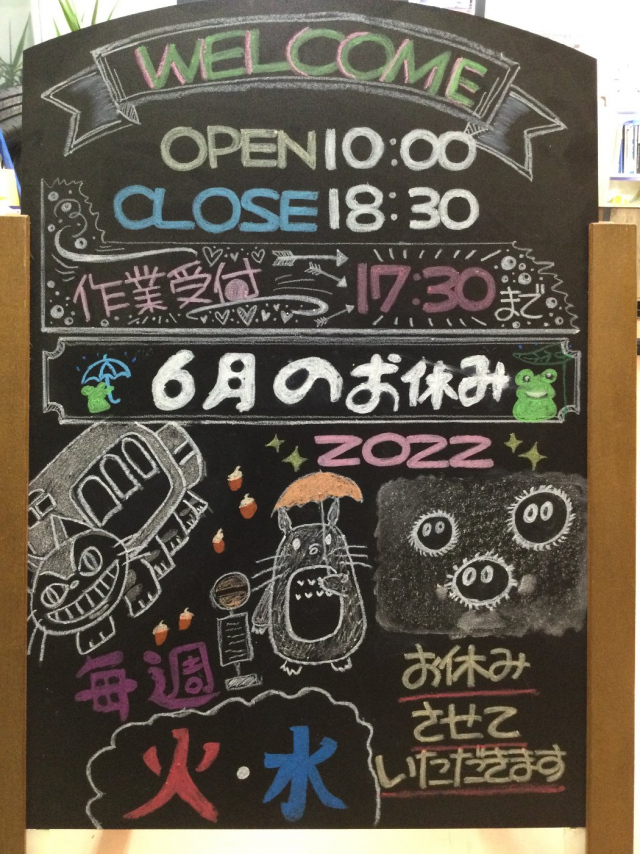 WELCOME
OPEN 10:00
CLOSE 18:30
作業受付 17:30まで
6月のお休み
2022
毎週
火・水
お休み
させて
いただきます